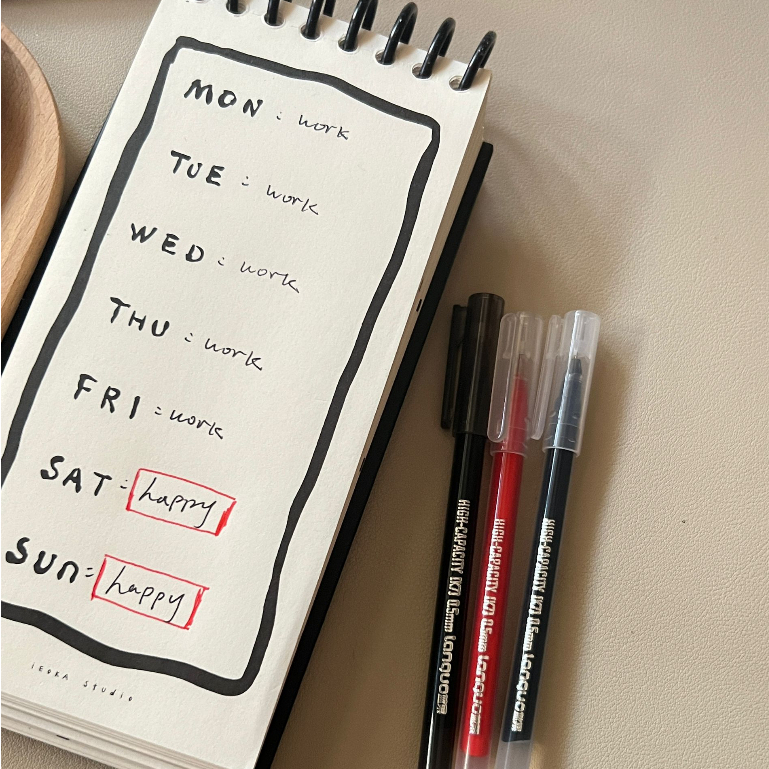 MON : work
TUE : work
WED : work
THU : work
FRI : work
SAT : happy
SUN : happy
IEOKA Studio
HIGH-CAPACITY (K7) 0.5mm Languo
HIGH-CAPACITY (K7) 0.5mm Languo
HIGH-CAPACITY (K7) 0.5mm Languo